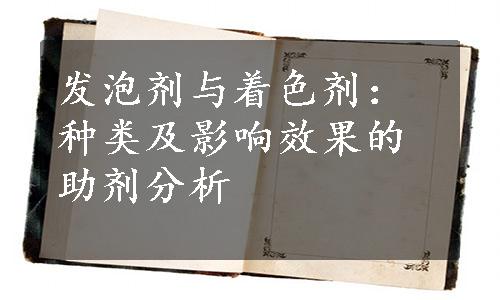 发泡剂与着色剂：
种类及影响效果的
助剂分析